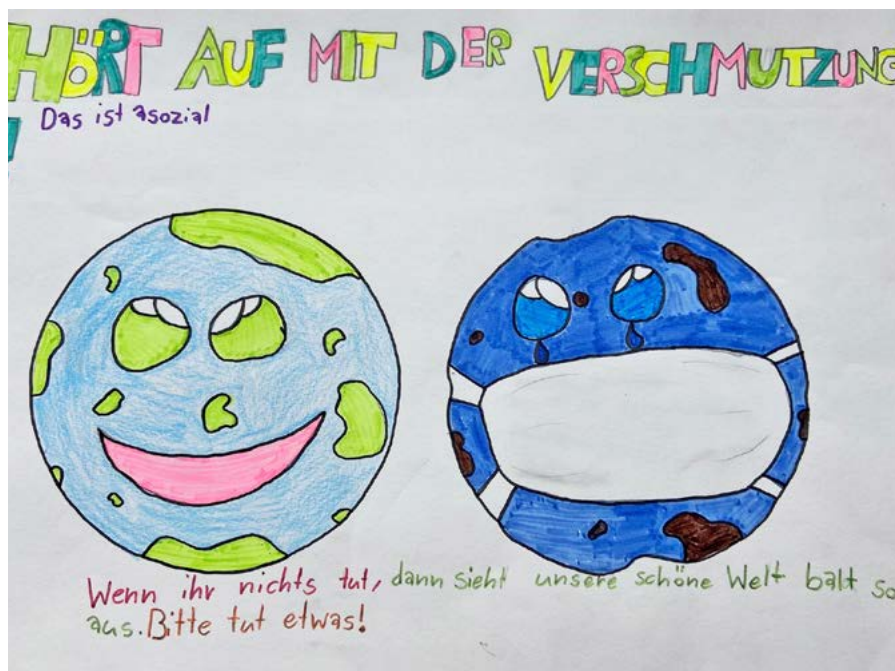 HÖRT AUF MIT DER VERSCHMUTZUNG
!
Das ist asozial
Wenn ihr nichts tut, dann sieht unsere schöne Welt balt so
aus. Bitte tut etwas!